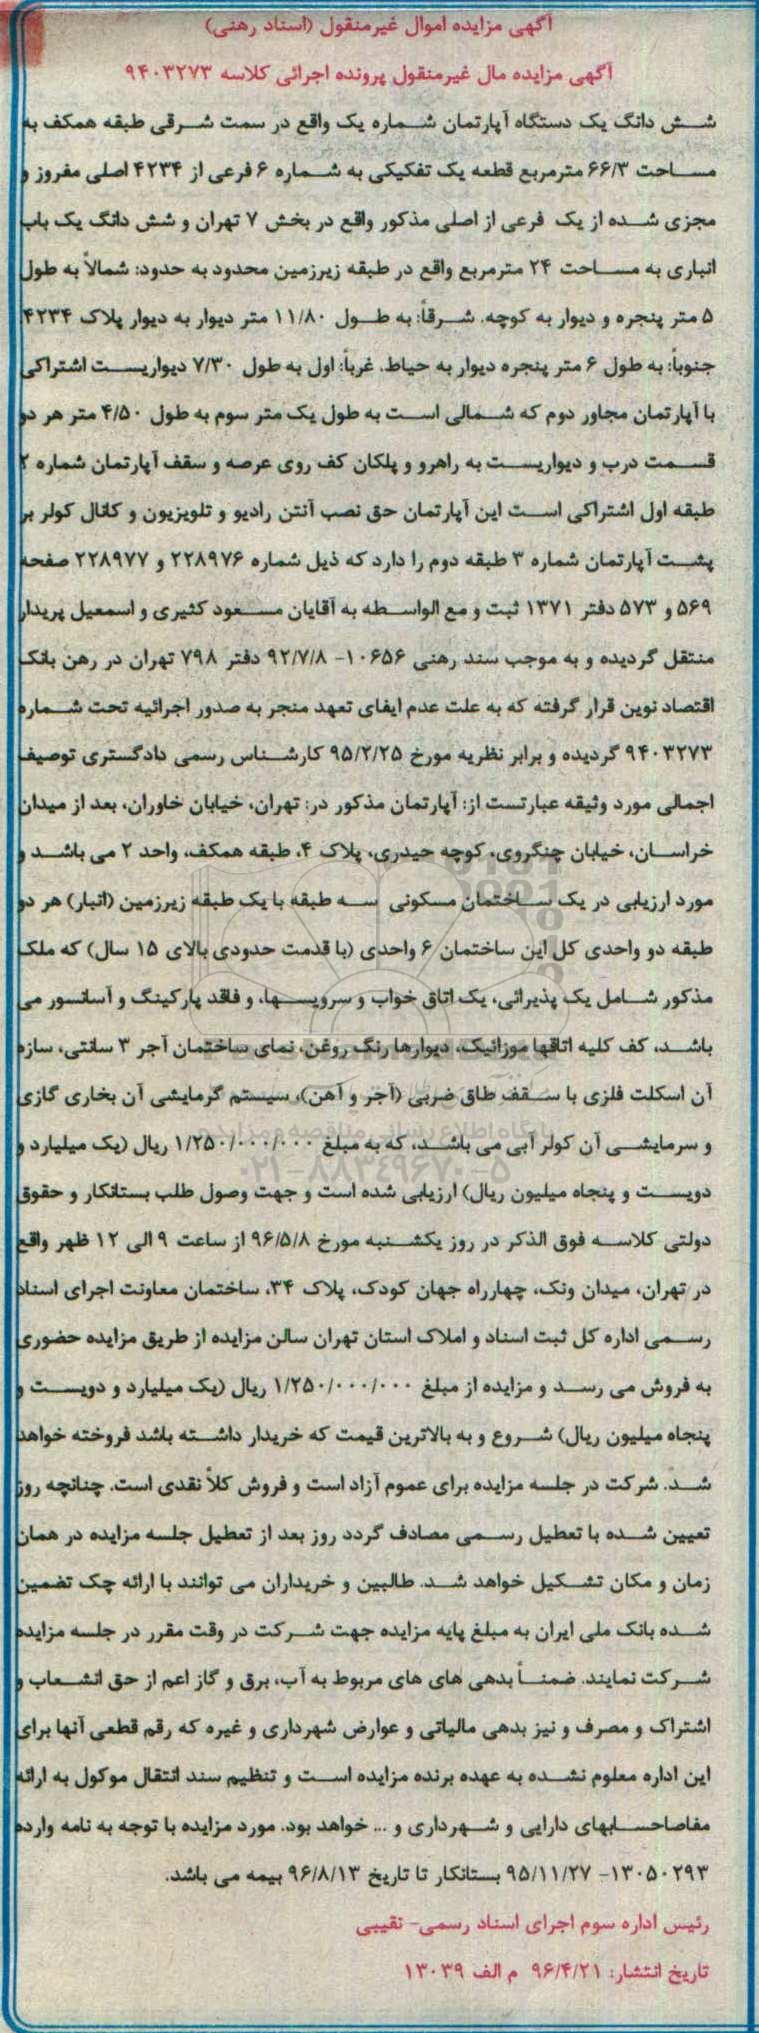 آگهی مزایده اموال غیرمنقول (اسناد رهنی)
آگهی مزایده مال غیرمنقول پرونده اجرائی کلاسه ۹۴۰۳۲۷۳
شش دانگ یک دستگاه آپارتمان شماره یک واقع در سمت شرقی طبقه همکف به
مساحت ۶۶/۳ مترمربع قطعه یک تفکیکی به شماره ۶ فرعی از ۴۲۳۴ اصلی مفروز و
مجزی شده از یک فرعی از اصلی مذکور واقع در بخش ۷ تهران و شش دانگ یک باب
انباری به مساحت ۲۴ مترمربع واقع در طبقه زیرزمین محدود به حدود: شمالاً به طول
۵ متر پنجره و دیوار به کوچه. شرقاً: به طول ۱۱/۸۰ متر دیوار به دیوار پلاک ۴۲۳۴
جنوباً: به طول ۶ متر پنجره دیوار به حیاط. غرباً: اول به طول ۷/۳۰ دیواریست اشتراکی
با آپارتمان مجاور دوم که شمالی است به طول یک متر سوم به طول ۴/۵۰ متر هر دو
قسمت درب و دیواریست به راهرو و پلکان کف روی عرصه و سقف آپارتمان شماره ۲
طبقه اول اشتراکی است این آپارتمان حق نصب آنتن رادیو و تلویزیون و کانال کولر بر
پشت آپارتمان شماره ۳ طبقه دوم را دارد که ذیل شماره ۲۲۸۹۷۶ و ۲۲۸۹۷۷ صفحه
۵۶۹ و ۵۷۳ دفتر ۱۳۷۱ ثبت و مع الواسطه به آقایان مسعود کثیری و اسمعیل پریدار
منتقل گردیده و به موجب سند رهنی ۱۰۶۵۶- ۹۲/۷/۸ دفتر ۷۹۸ تهران در رهن بانک
اقتصاد نوین قرار گرفته که به علت عدم ایفای تعهد منجر به صدور اجرائیه تحت شماره
۹۴۰۳۲۷۳ گردیده و برابر نظریه مورخ ۹۵/۲/۲۵ کارشناس رسمی دادگستری توصیف
اجمالی مورد وثیقه عبارتست از: آپارتمان مذکور در: تهران، خیابان خاوران، بعد از میدان
خراسان، خیابان چنگروی، کوچه حیدری، پلاک ۴، طبقه همکف، واحد ۲ می باشد و
مورد ارزیابی در یک ساختمان مسکونی سه طبقه با یک طبقه زیرزمین (انبار) هر دو
طبقه دو واحدی کل این ساختمان ۶ واحدی (با قدمت حدودی بالای ۱۵ سال) که ملک
مذکور شامل یک پذیرائی، یک اتاق خواب و سرویسها، و فاقد پارکینگ و آسانسور می
باشد، کف کلیه اتاقها موزائیک، دیوارها رنگ روغن، نمای ساختمان آجر ۳ سانتی، سازه
آن اسکلت فلزی با سقف طاق ضربی (آجر و آهن)، سیستم گرمایشی آن بخاری گازی
و سرمایشی آن کولر آبی می باشد، که به مبلغ ۱/۲۵۰/۰۰۰/۰۰۰ ریال (یک میلیارد و
دویست و پنجاه میلیون ریال) ارزیابی شده است و جهت وصول طلب بستانکار و حقوق
دولتی کلاسه فوق الذکر در روز یکشنبه مورخ ۹۶/۵/۸ از ساعت ۹ الی ۱۲ ظهر واقع
در تهران، میدان ونک، چهارراه جهان کودک، پلاک ۳۴، ساختمان معاونت اجرای اسناد
رسمی اداره کل ثبت اسناد و املاک استان تهران سالن مزایده از طریق مزایده حضوری
به فروش می رسد و مزایده از مبلغ ۱/۲۵۰/۰۰۰/۰۰۰ ریال (یک میلیارد و دویست و
پنجاه میلیون ریال) شروع و به بالاترین قیمت که خریدار داشته باشد فروخته خواهد
شد. شرکت در جلسه مزایده برای عموم آزاد است و فروش کلاً نقدی است. چنانچه روز
تعیین شده با تعطیل رسمی مصادف گردد روز بعد از تعطیل جلسه مزایده در همان
زمان و مکان تشکیل خواهد شد. طالبین و خریداران می توانند با ارائه چک تضمین
شده بانک ملی ایران به مبلغ پایه مزایده جهت شرکت در وقت مقرر در جلسه مزایده
شرکت نمایند. ضمناً بدهی های های مربوط به آب، برق و گاز اعم از حق انشعاب و
اشتراک و مصرف و نیز بدهی مالیاتی و عوارض شهرداری و غیره که رقم قطعی آنها برای
این اداره معلوم نشده به عهده برنده مزایده است و تنظیم سند انتقال موکول به ارائه
مفاصاحسابهای دارایی و شهرداری و ... خواهد بود. مورد مزایده با توجه به نامه وارده
۱۳۰۵۰۲۹۳- ۹۵/۱۱/۲۷ بستانکار تا تاریخ ۹۶/۸/۱۳ بیمه می باشد.
رئیس اداره سوم اجرای اسناد رسمی- نقیبی
تاریخ انتشار: ۹۶/۴/۲۱ م الف ۱۳۰۳۹
پایگاه اطلاع رسانی مناقصه و مزایده
۰۲۱-۸۸۳۴۹۶۷۰-۵